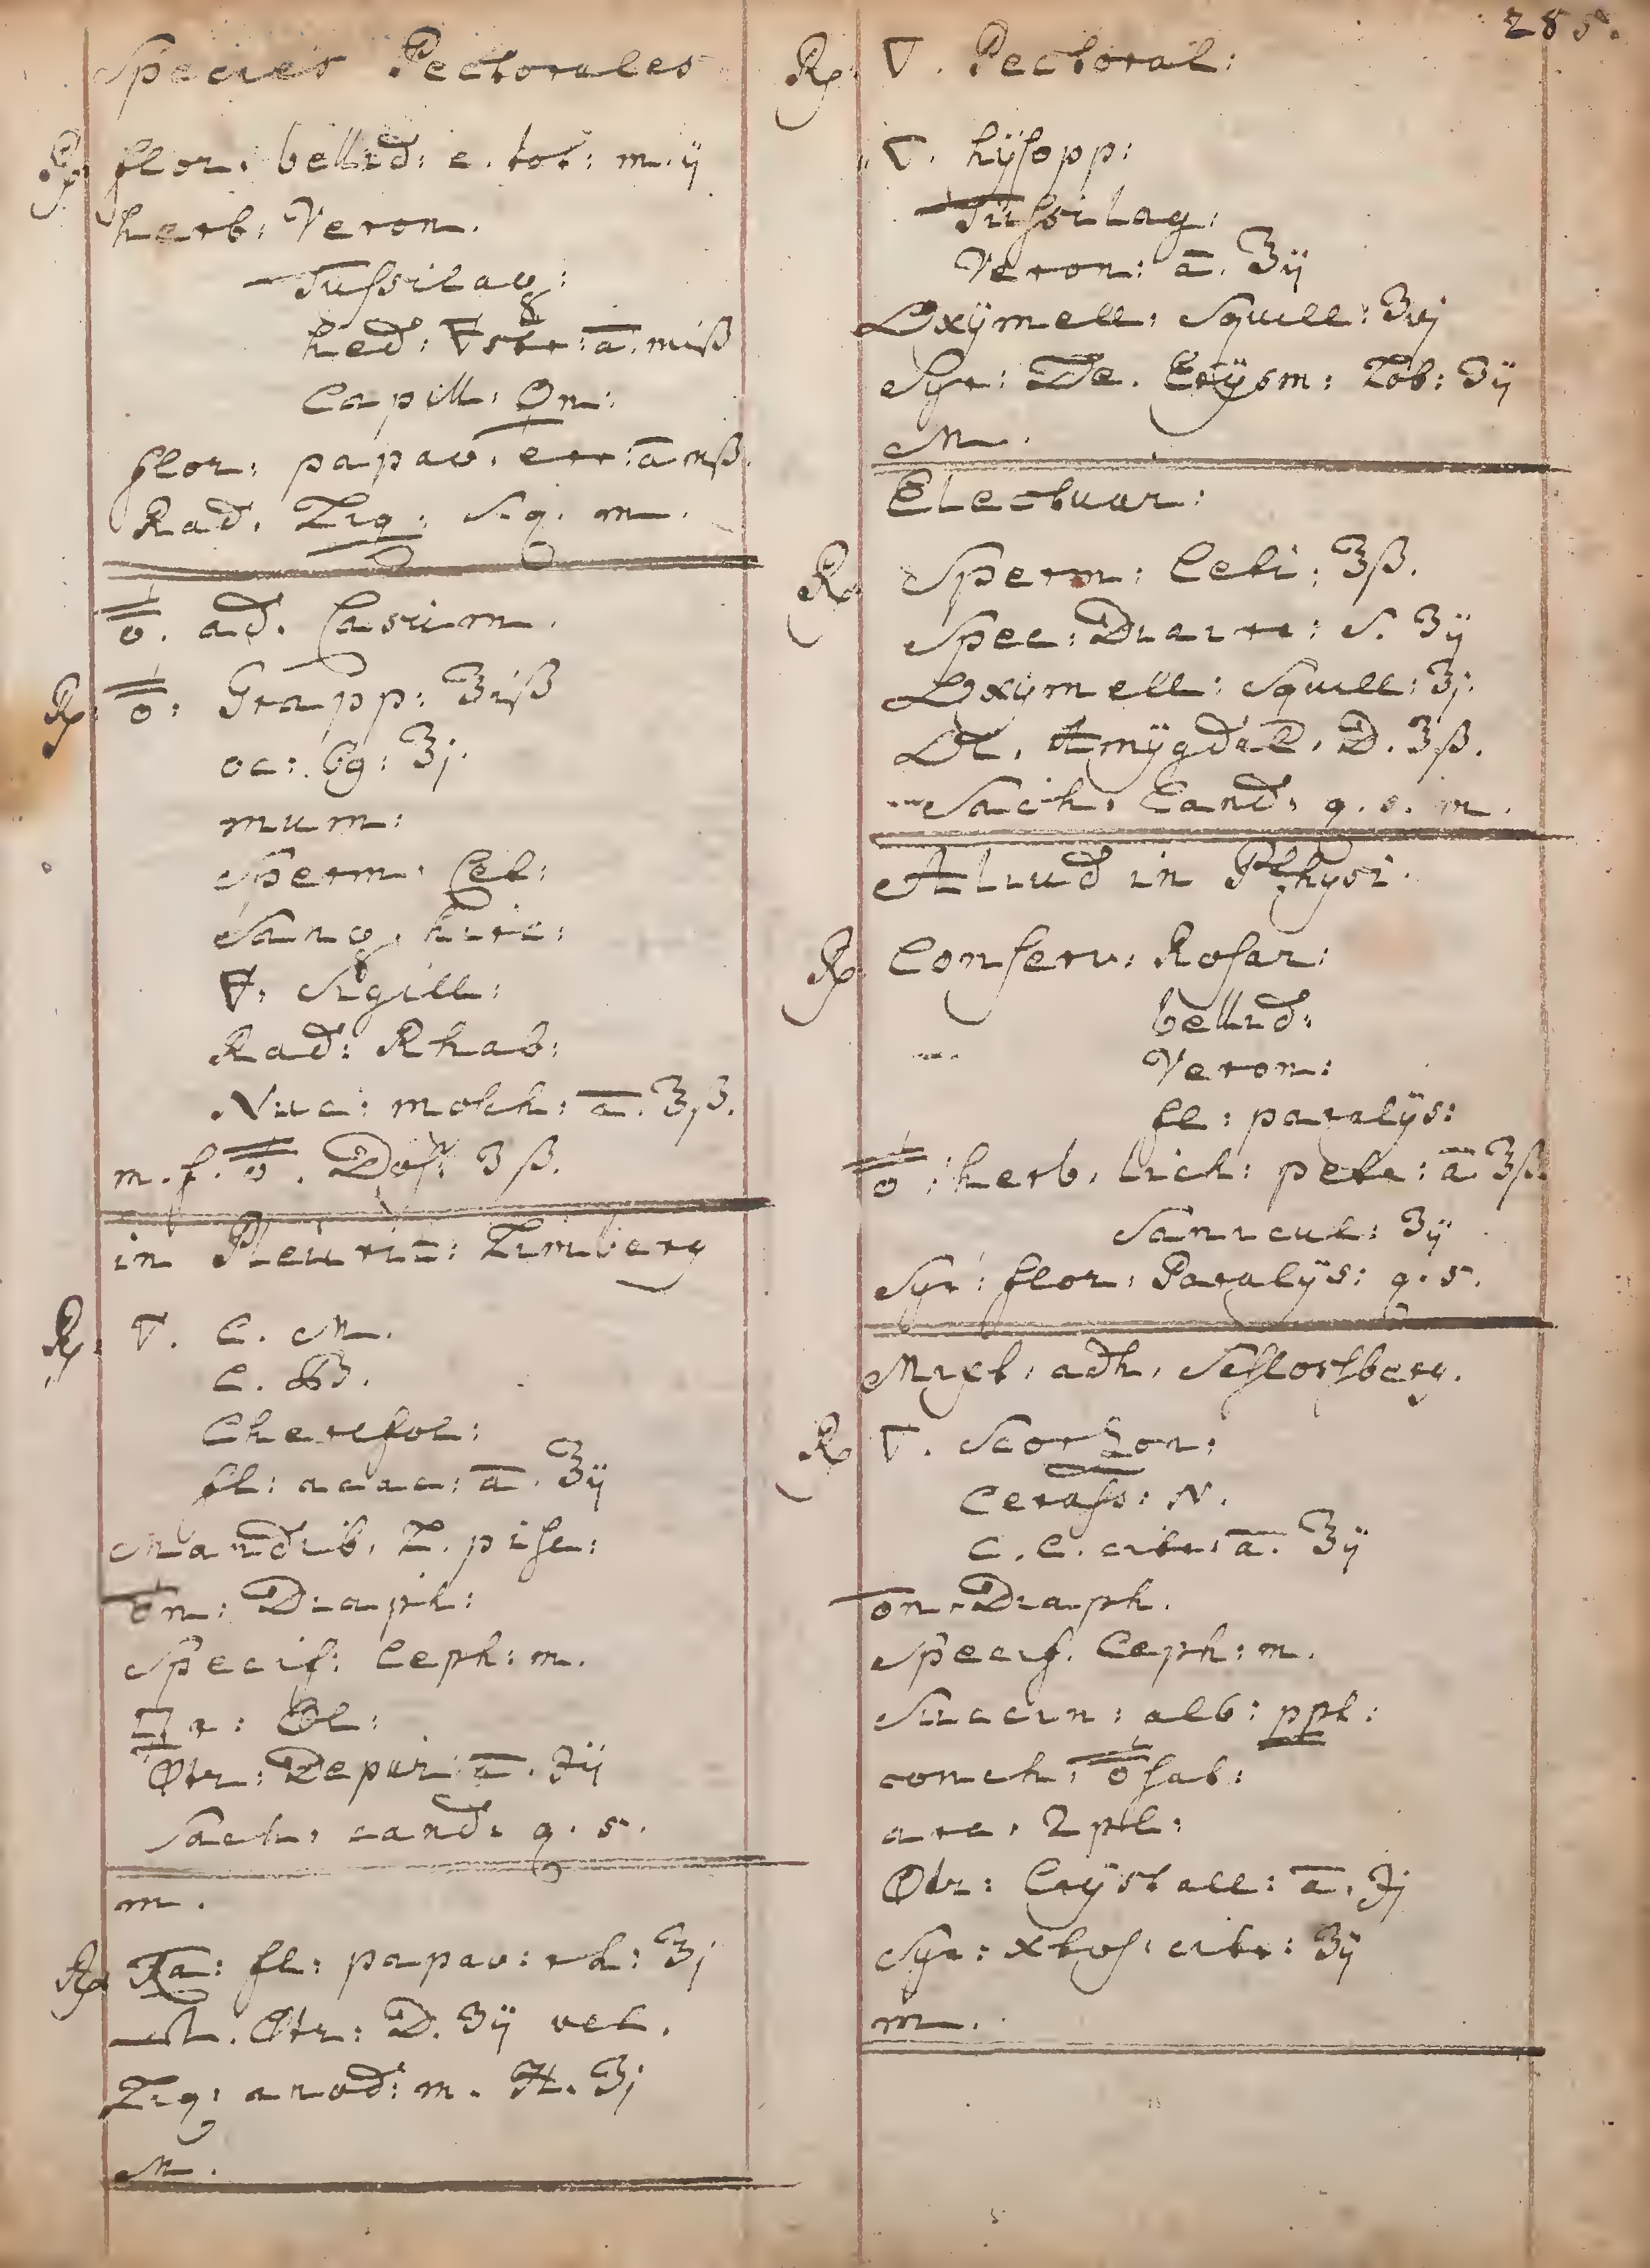 285.
Species Pectorales
℞ flor: bellid: c. tot: m. ij
herb: Veron.
Tussilag:
hed: 🜃str: ā. miß
Capill: ♀n:
flor: papav: err: ā mß.
Rad. Liq: S. q. m.
🜍. ad. Casum.
℞ Grapp: ʒiß
oc: 69: ʒj.
mum:
Sperm: Cet:
Sang: hirc:
🜃. Sigill:
Rad: Rhab:
Nuc: mosch: ā. ʒß.
m. f. . Dos: ʒß.
in Pleurit: Limberg
℞ ▽. C. M.
C. B.
Cherefol:
fl: acac: ā. ℥ij
Mandib. L. pisc:
♁n: Diaph:
Specif: Ceph: m.
▭r: Ol:
🜕tr: Depur: ā. ℈ij
Sach: cand: q. s.
m.
℞ Ra: fl: papav: rh: ʒj
🜕tr: D. ʒij vel.
Liq: anod: m. H. ʒj
M.
℞ ▽. Pectoral:
▽. hÿsopp:
Tussilag:
Veron: ā. ℥ij
Oxÿmell: Squill: ʒvj
Syr: De. Erÿsm: Lob: ʒij
M.
Electuar:
℞ Sperm: Ceti: ʒß.
Spec: Diairr: S. ʒij
Oxÿmell: Squill: ℥j.
Ol. Amÿgdal. D. ℥ß.
Sach: Cand: q. s. m.
Aliud in Phthysi.
℞ Conserv: Rosar:
bellid:
Veron:
fl: paralÿs:
herb: lich: petr: ā ℥ß.
Sanicul: ʒij
Syr: flor: Paralÿs: q. s.
Mixt: adh: Schlossberg.
℞ ▽. Scorzon:
Cerass: N.
C. C. citr: ā. ℥ij
♁n. Diaph.
Specif. Ceph: m.
Succin: alb: ppt:
conch: sab:
arc: 2plt:
🜕tr: Crÿstall: ā. ℈j
Syr: xtos: citr: ʒij
m.